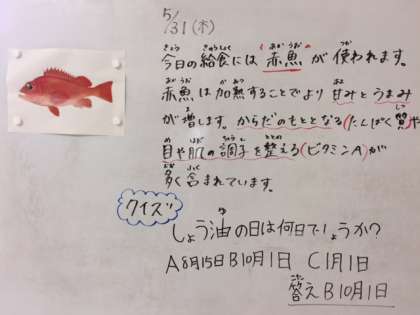 5/31(木)
今日の給食には赤魚が使われます。
赤魚は加熱することでより甘みとうまみ
が増します。からだのもととなる(たんぱく質)や
目や肌の調子を整える(ビタミンA)が
多く含まれています。
クイズ
しょう油の日は何日でしょうか?
A8月15日 B10月1日 C1月1日
答え B10月1日